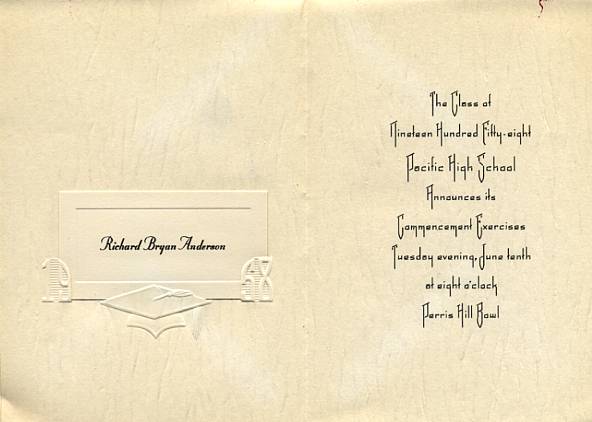 Richard Bryan Anderson
19 58
The Class of
Nineteen Hundred Fifty-eight
Pacific High School
Announces its
Commencement Exercises
Tuesday evening, June tenth
at eight o'clock
Perris Hill Bowl